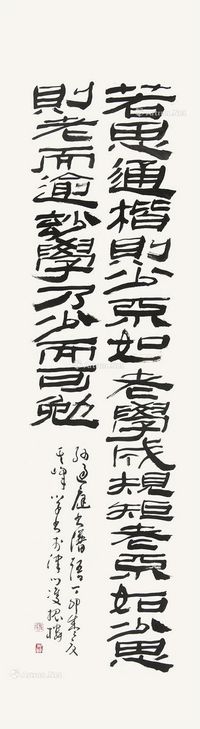 若思通楷則少不如老學成規矩老不如少思
則老而逾妙學乃少而可勉
孫過庭書譜語丁卯
其峰學書於津門雙槐樓